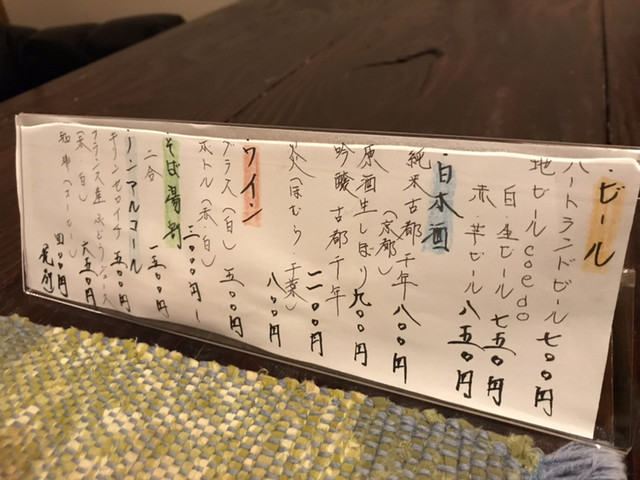 ・ビール
ハートランドビール 七〇〇円
地ビール coedo
白・生ビール 七五〇円
赤・芋ビール 八五〇円
・日本酒
純米古都千年 八〇〇円
(京都)
原酒生しぼり 九〇〇円
吟醸古都千年 一二〇〇円
(ほむら・千葉) 八〇〇円
・ワイン
グラス(白) 五〇〇円
ボトル(赤・白) 三〇〇〇円
・そば湯割
二合 一五〇〇円
・ノンアルコール
キリンゼロイチ 五〇〇円
フランス産ぶどうジュース
(赤・白) 六五〇円
四〇〇円